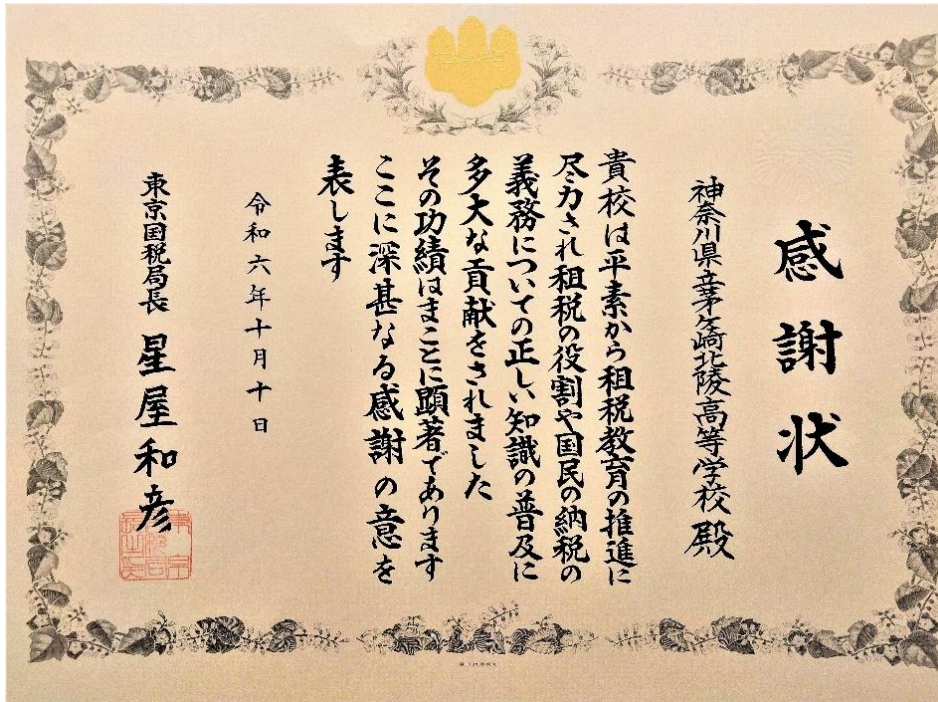 感謝状
神奈川県立茅ヶ崎北陵高等学校 殿
貴校は平素から租税教育の推進に
尽力され租税の役割や国民の納税の
義務についての正しい知識の普及に
多大な貢献をされました
その功績はまことに顕著であります
ここに深甚なる感謝の意を
表します
令和六年十月十日
東京国税局長 星屋和彦